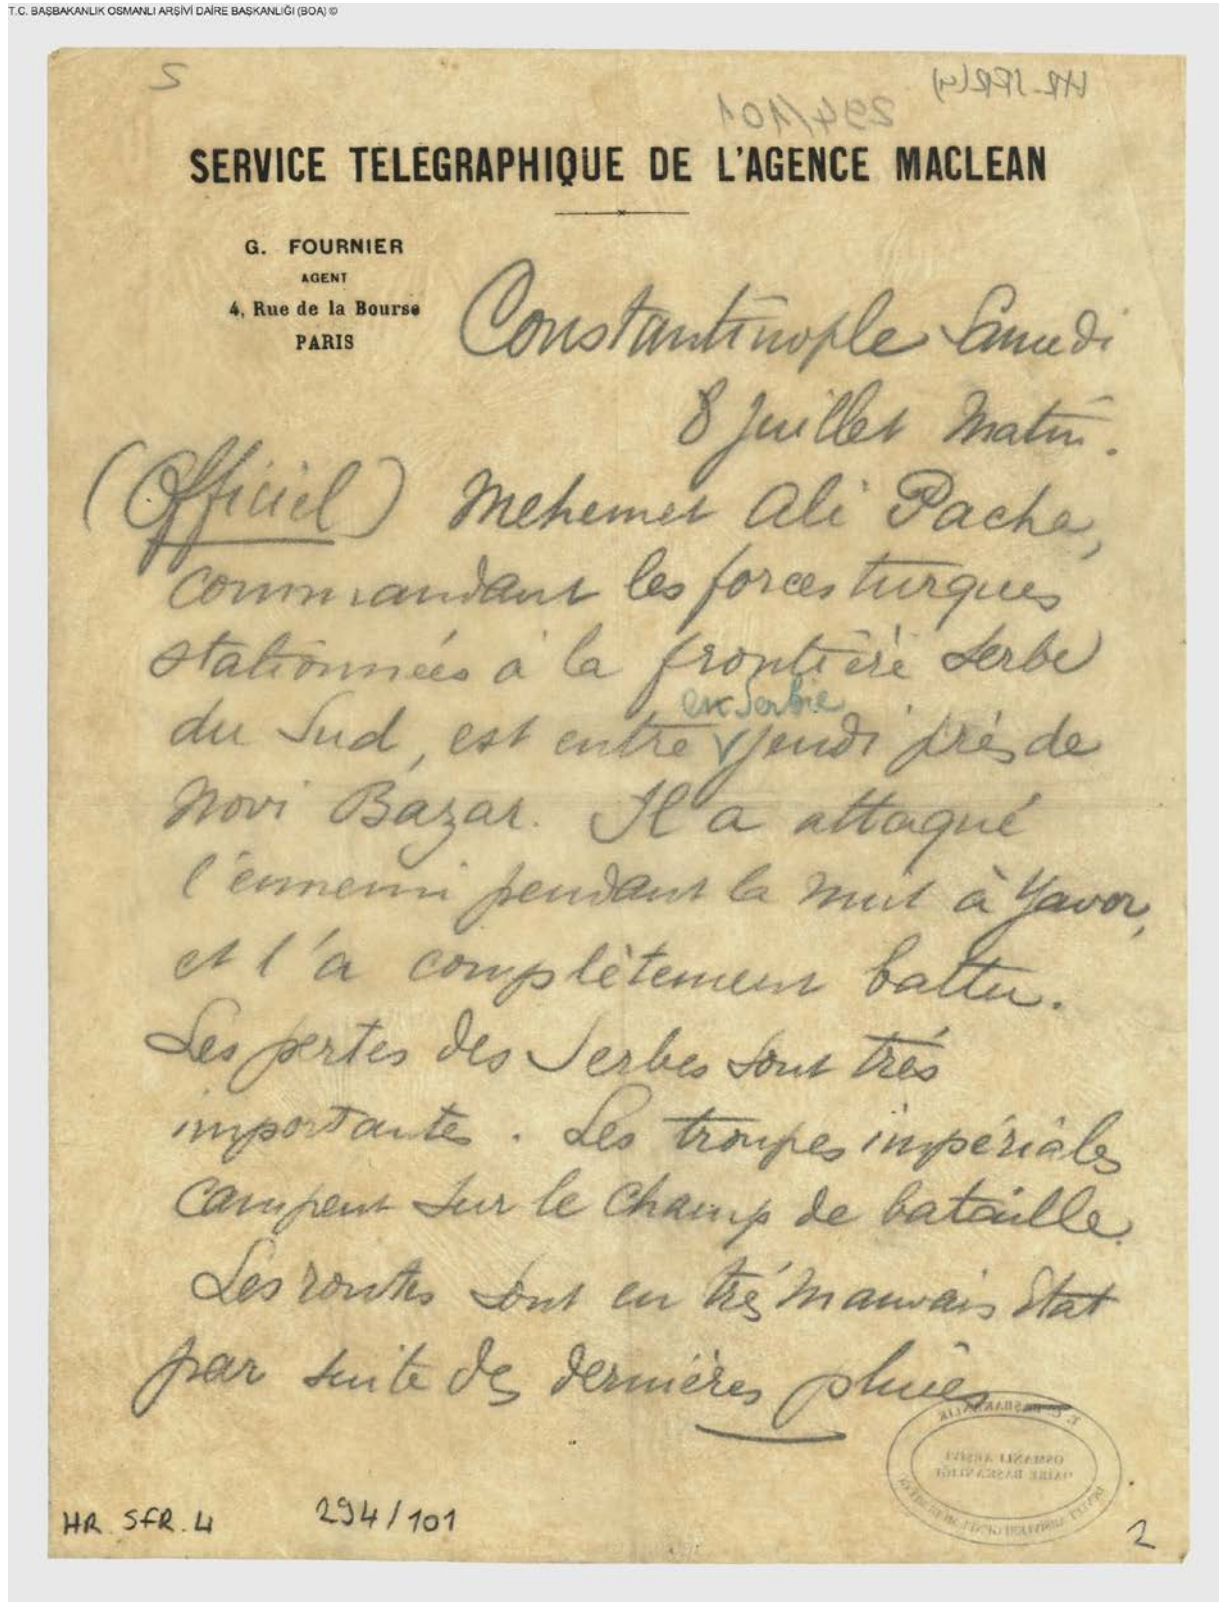 T.C. BAŞBAKANLIK OSMANLI ARŞİVİ DAİRE BAŞKANLIĞI (BOA) ©
HR-SFR(4)
294/101
SERVICE TELEGRAPHIQUE DE L'AGENCE MACLEAN
G. FOURNIER
AGENT
4, Rue de la Bourse
PARIS
Constantinople Samedi
8 Juillet Matin.
(Officiel) Mehemet Ali Pacha,
commandant les forces turques
stationnées à la frontière Serbe
du Sud, est entré jeudi près de
en Serbie
Novi Bazar. Il a attaqué
l'ennemi pendant la nuit à Yavor,
et l'a complètement battu.
Les pertes des Serbes sont très
importantes. Les troupes impériales
campent sur le champ de bataille.
Les routes sont en très mauvais état
par suite des dernières pluies
T. C. BAŞBAKANLIK
OSMANLI ARŞİVİ
DAİRE BAŞKANLIĞI
HR. SFR. 4 294/101
2